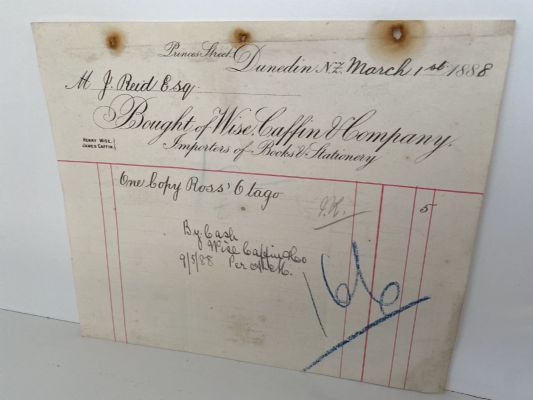 Princes Street, Dunedin N.Z. March 1st 1888
M J. Reid Esq.
Bought of Wise, Caffin & Company,
HENRY WISE.
JAMES CAFFIN.
Importers of Books & Stationery
One Copy Ross' Otago 5
By Cash
Wise Caffin & Co
9/5/88 Per
166